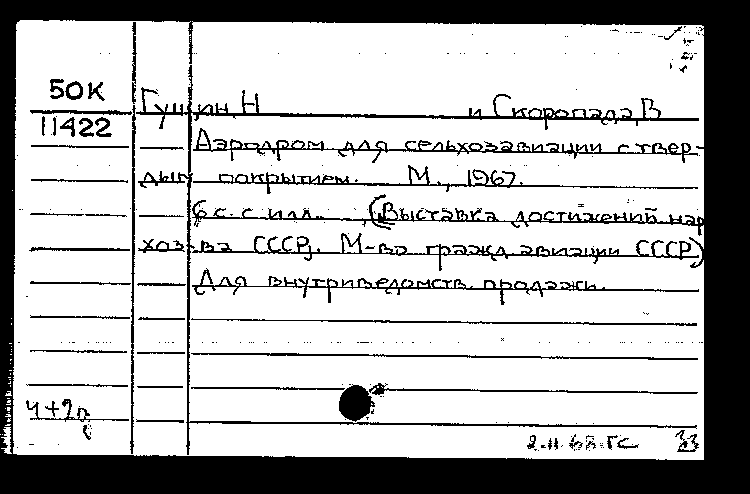 50К
Гущин, Н и Скоропада, В
11422
Аэродром для сельхозавиации с твер-
дым покрытием. М., 1967.
6 с. с илл. (Выставка достижений нар
хоз-ва СССР. М-во гражд авиации СССР)
Для внутриведомств. продажи.
ч+2п
2.11.68 ГС 33